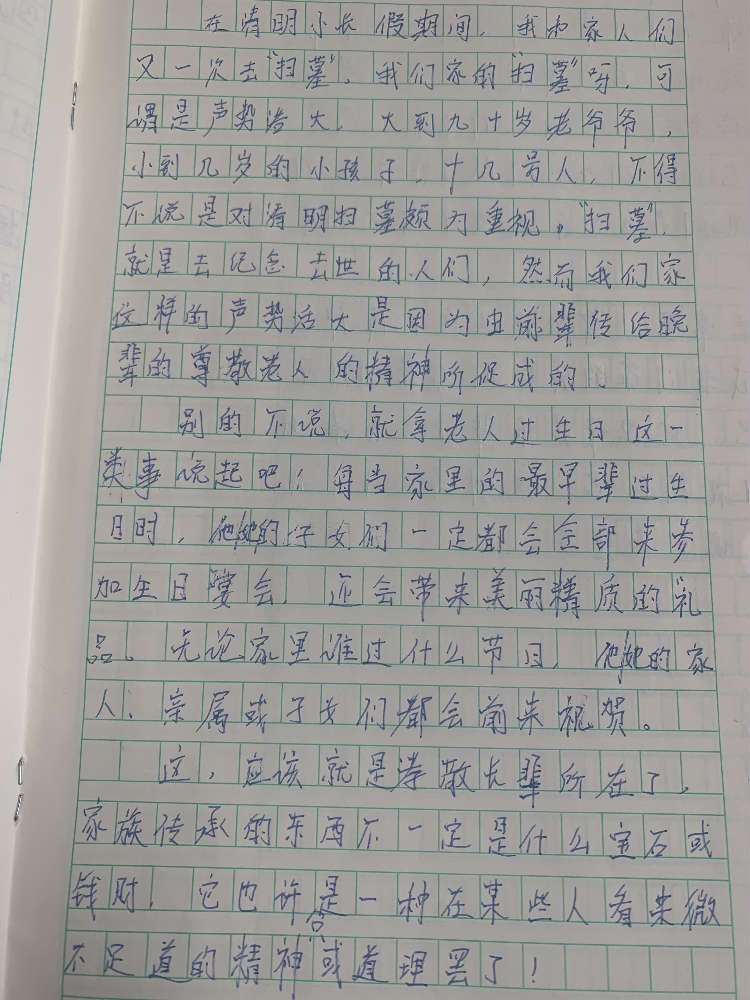 在清明小长假期间，我和家人们
又一次去“扫墓”，我们家的“扫墓”呀，可
谓是声势浩大，大到九十岁老爷爷，
小到几岁的小孩子，十几号人，不得
不说是对清明扫墓颇为重视。“扫墓”，
就是去纪念去世的人们，然而我们家
这样的声势浩大是因为由前辈传给晚
辈的尊敬老人的精神所促成的。
别的不说，就拿老人过生日这一
类事说起吧！每当家里的最早辈过生
日时，他她的子女们一定都会全部来参
加生日宴会，还会带来美丽精质的礼
品。无论家里谁过什么节日，他她的家
人、亲属或子女们都会前来祝贺。
这，应该就是孝敬长辈所在了，
家族传承的东西不一定是什么宝石或
钱财，它也许是一种在某些人看来微
不足道的精神或道理罢了！